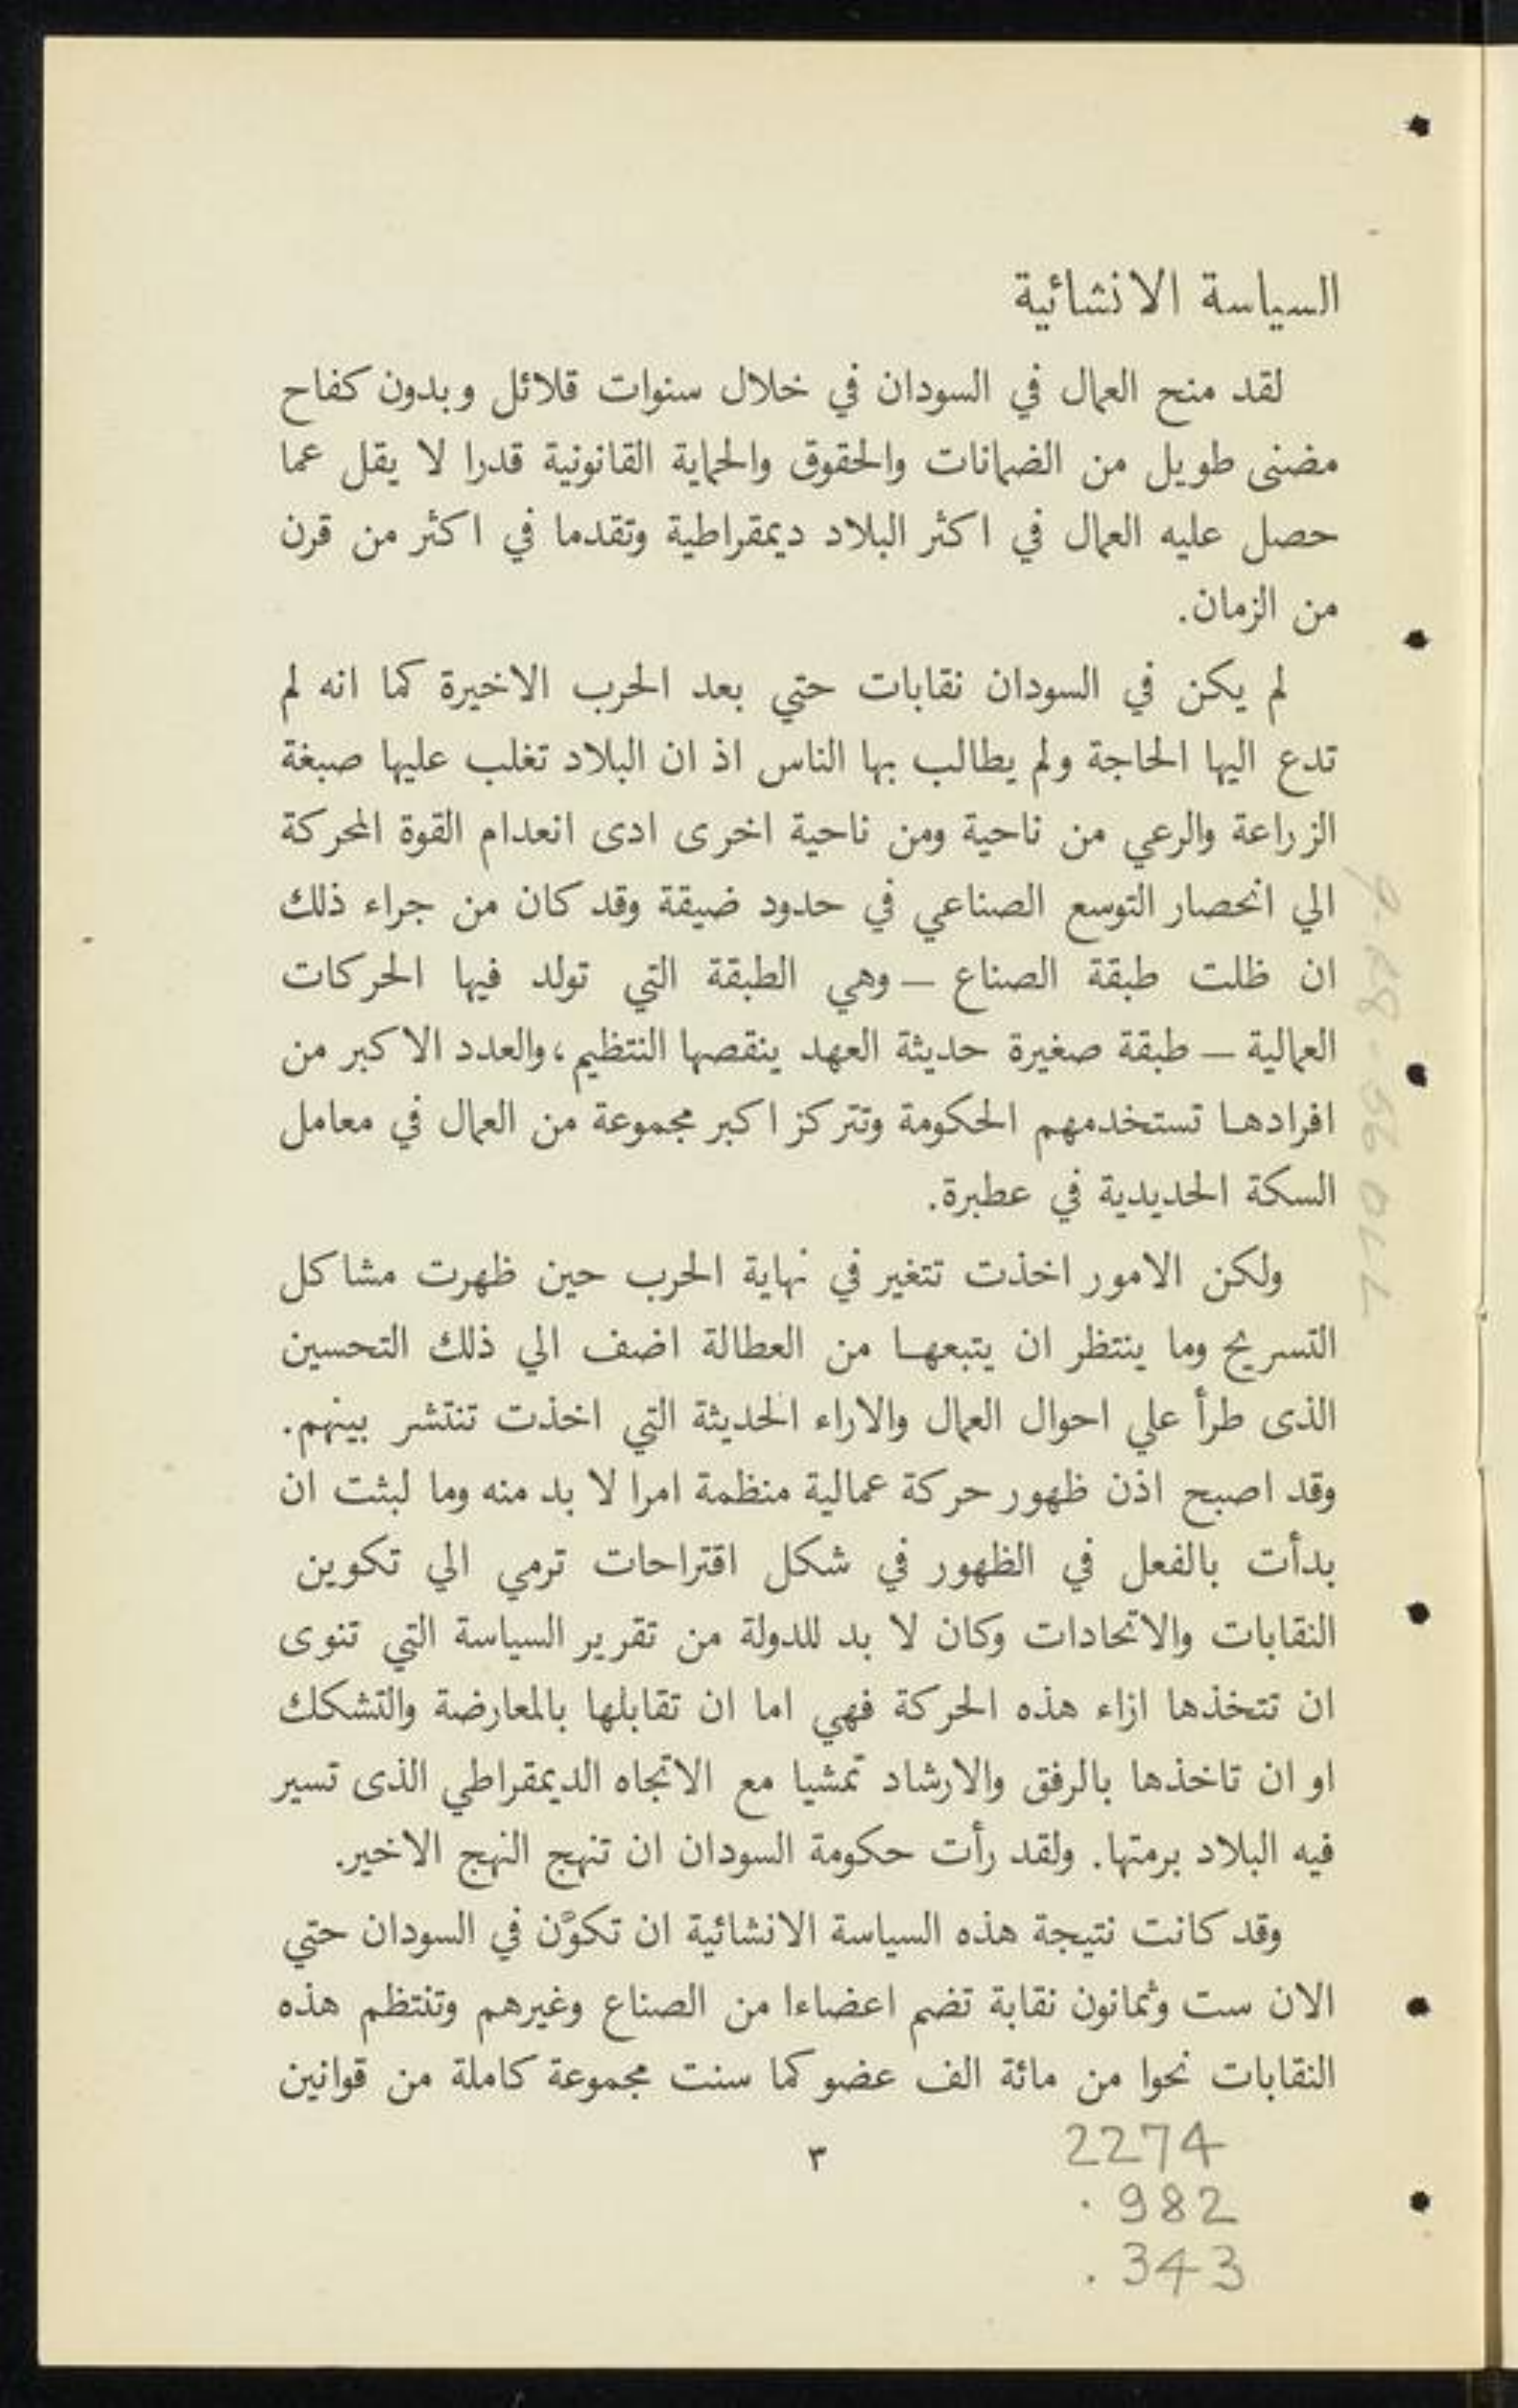 السياسة الانشائية
لقد منح العمال في السودان في خلال سنوات قلائل وبدون كفاح
مضنى طويل من الضمانات والحقوق والحماية القانونية قدرا لا يقل عما
حصل عليه العمال في اكثر البلاد ديمقراطية وتقدما في اكثر من قرن
من الزمان.
لم يكن في السودان نقابات حتي بعد الحرب الاخيرة كما انه لم
تدع اليها الحاجة ولم يطالب بها الناس اذ ان البلاد تغلب عليها صبغة
الزراعة والرعي من ناحية ومن ناحية اخرى ادى انعدام القوة المحركة
الي انحصار التوسع الصناعي في حدود ضيقة وقد كان من جراء ذلك
ان ظلت طبقة الصناع – وهي الطبقة التي تولد فيها الحركات
العمالية – طبقة صغيرة حديثة العهد ينقصها التنظيم، والعدد الاكبر من
افرادها تستخدمهم الحكومة وتتركز اكبر مجموعة من العمال في معامل
السكة الحديدية في عطبرة.
ولكن الامور اخذت تتغير في نهاية الحرب حين ظهرت مشاكل
التسريح وما ينتظر ان يتبعها من العطالة اضف الي ذلك التحسين
الذى طرأ علي احوال العمال والاراء الحديثة التي اخذت تنتشر بينهم.
وقد اصبح اذن ظهور حركة عمالية منظمة امرا لا بد منه وما لبثت ان
بدأت بالفعل في الظهور في شكل اقتراحات ترمي الي تكوين
النقابات والاتحادات وكان لا بد للدولة من تقرير السياسة التي تنوى
ان تتخذها ازاء هذه الحركة فهي اما ان تقابلها بالمعارضة والتشكك
او ان تاخذها بالرفق والارشاد تمشيا مع الاتجاه الديمقراطي الذى تسير
فيه البلاد برمتها. ولقد رأت حكومة السودان ان تنهج النهج الاخير.
وقد كانت نتيجة هذه السياسة الانشائية ان تكوّن في السودان حتي
الان ست وثمانون نقابة تضم اعضاءا من الصناع وغيرهم وتنتظم هذه
النقابات نحوا من مائة الف عضو كما سنت مجموعة كاملة من قوانين
٣
2274
. 982
. 343